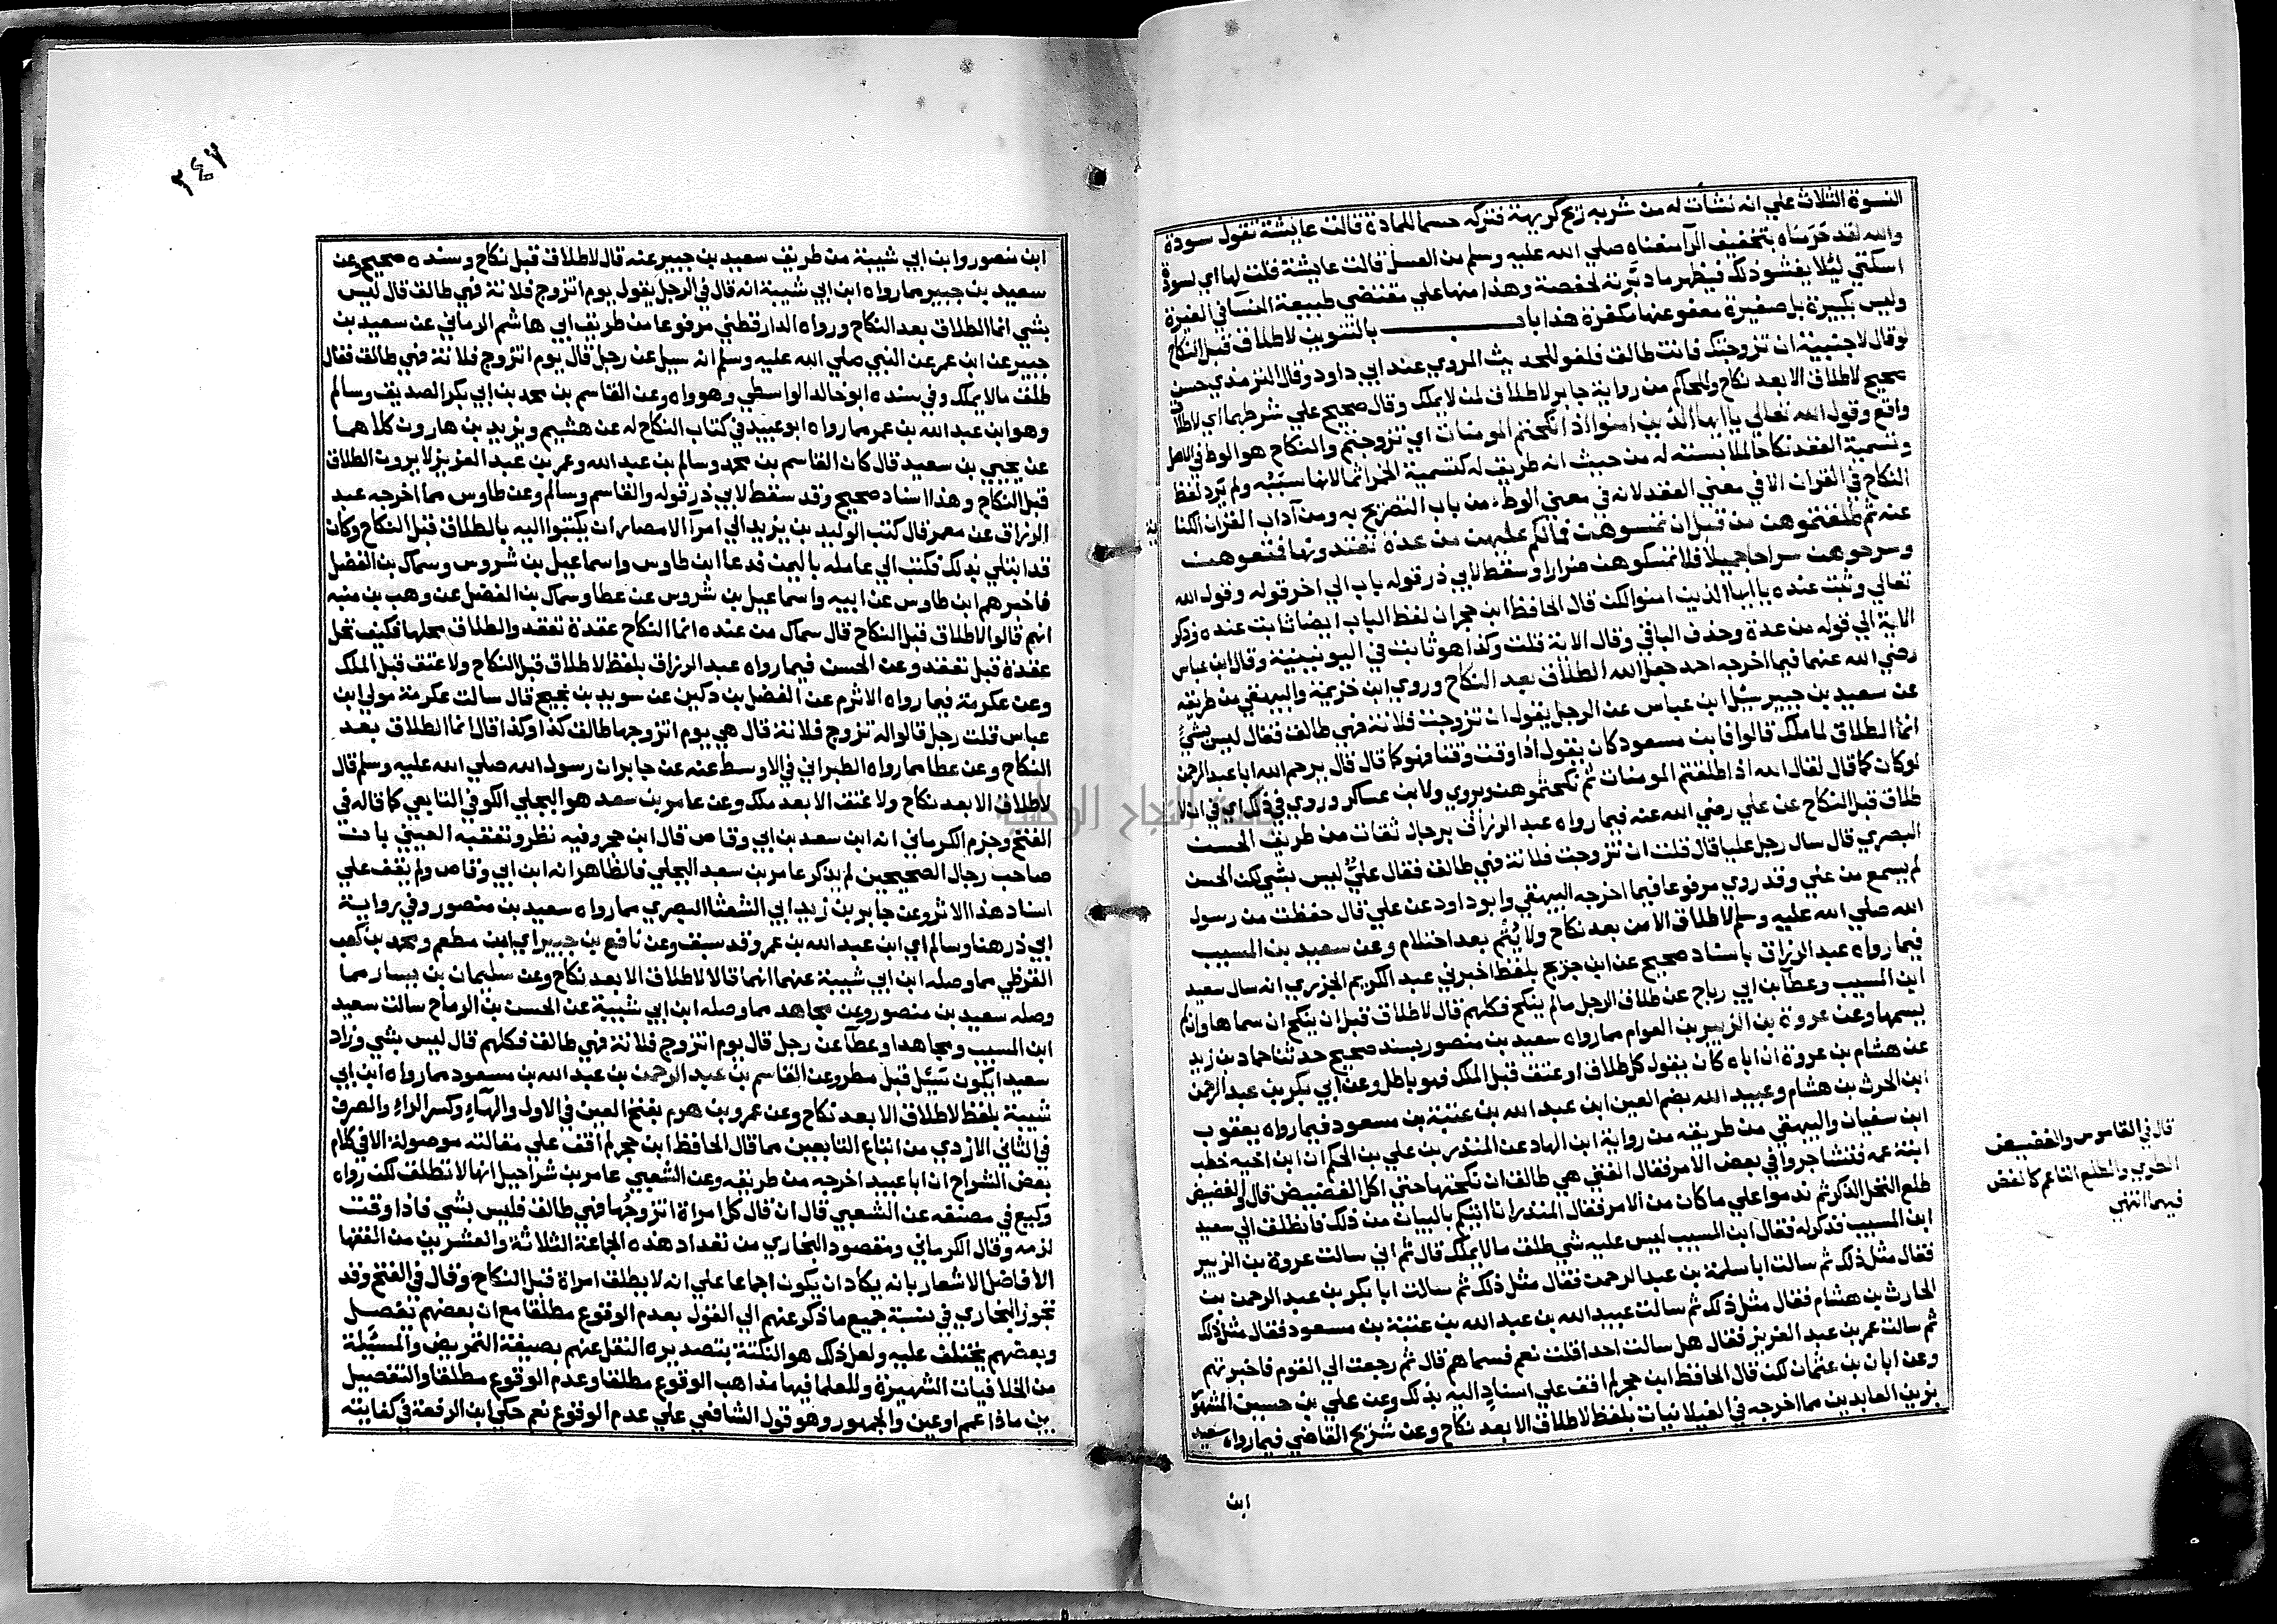 النسوة الثلاث علي انه نشات له من شربه ريح كريهة فتركه حسما للمادة قالت عايشة تقول سودة
والله لقد حَرَمناه بتخفيف الرآ منعناه صلي الله عليه وسلم من العسل قالت عايشة قلت لها اي لسودة
اسكتي لئلا يفشو ذلك فيظهر ما دبَّرته لحفصة وهذا منها علي مقتضي طبيعة النسآ في الغيرة
وليس بكبيرة بل صغيرة معفو عنها مكفرة هذا باب بالتنوين لا طلاق قبل النكاح
لو قال لاجنبية ان تزوجتك فانت طالق فلغو للحديث المروي عند ابي داود وقال الترمذي حسن
صحيح لا طلاق الا بعد نكاح وللحاكم من رواية جابر لا طلاق لمن لا يملك وقال صحيح علي شرطهما اي لا طلاق
واقع وقول الله تعالي يا ايها الذين امنوا اذا نكحتم المومنات اي تزوجتم والنكاح هو الوطء في الاصل
وتسمية العقد نكاحا لملابسته له من حيث انه طريق له كتسمية الخمر اثما لانها سببُه ولم يَرِد لفظ
النكاح في القران الا في معني العقد لانه في معني الوطء من باب التصريح به ومن آداب القران الكناية
عنه ثم طلقتموهن من قبل ان تمسوهن فمالكم عليهن من عدة تعتدونها فمتعوهن
وسرحوهن سراحا جميلا فلا تمسكوهن ضرارا وسقط لابي ذر قوله باب الي اخر قوله وقول الله
تعالي وثبت عنده يا ايها الذين امنوا لكن قال الحافظ ابن حجر ان لفظ الباب ايضا ثابت عنده وذكر
الاية الي قوله من عدة وحذف الباقي وقال الاية قلت وكذا هو ثابت في اليونينية وقال ابن عباس
رضي الله عنهما فيما اخرجه احمد جعل الله الطلاق بعد النكاح وروي ابن خزيمة والبيهقي من طريقه
عن سعيد بن جبير سئل ابن عباس عن الرجل يقول ان تزوجت فلانة فهي طالق فقال ليس بشيٍ
انما الطلاق لما ملك قالوا فابن مسعود كان يقول اذا وقت وقتا فهو كما قال قال يرحم الله ابا عبد الرحمن
لو كان كما قال لقال الله اذا طلقتم المومنات ثم نكحتموهن ويروي ولابن عساكر وروي في ذلك اي في ان لا
طلاق قبل النكاح عن علي رضي الله عنه فيما رواه عبد الرزاق برجال ثقات من طريق الحسن
البصري قال سال رجل عليا قال قلت ان تزوجت فلانة فهي طالق فقال عليٌّ ليس بشي لكن الحسن
لم يسمع من علي وقد روي مرفوعا فيما اخرجه البيهقي وابو داود عن علي قال حفظت من رسول
الله صلي الله عليه وسلم لا طلاق الا من بعد نكاح ولا يُتْم بعد احتلام وعن سعيد بن المسيب
فيما رواه عبد الرزاق باسناد صحيح عن ابن جريج بلفظ اخبرني عبد الكريم الجزري انه سال سعيد
ابن المسيب وعطآ بن ابي رباح عن طلاق الرجل ما لم ينكح فكلهم قال لا طلاق قبل ان ينكح ان سماها وان لم
يسمها وعن عروة بن الزبير بن العوام مما رواه سعيد بن منصور بسند صحيح حدثنا حماد بن زيد
عن هشام بن عروة ان اباه كان يقول كل طلاق او عتق قبل الملك فهو باطل وعن ابي بكر بن عبد الرحمن
ابن الحرث بن هشام وعبيد الله بضم العين ابن عبد الله بن عتبة بن مسعود فيما رواه يعقوب
ابن سفيان والبيهقي من طريقه من رواية ابن الهاد عن المنذر بن علي بن الحكم ان ابن اخيه خطب
ابنة عمه فتشاجروا في بعض الامر فقال الفتي هي طالق ان نكحتها حتي اكل الغضيض قال والغضيض
طلع النخل الذكر ثم ندموا علي ما كان من الامر فقال المنذر انا اتيكم بالبيان من ذلك فانطلق الي سعيد
ابن المسيب فذكر له فقال ابن المسيب ليس عليه شي طلق ما لا يملك قال ثم اني سالت عروة بن الزبير
فقال مثل ذلك ثم سالت ابا سلمة بن عبد الرحمن فقال مثل ذلك ثم سالت ابا بكر بن عبد الرحمن بن
الحارث بن هشام فقال مثل ذلك ثم سالت عبيد الله بن عبد الله بن عتبة بن مسعود فقال مثل ذلك
ثم سالت عمر بن عبد العزيز فقال هل سالت احدا قلت نعم فسماهم قال ثم رجعت الي القوم فاخبرتهم
وعن ابان بن عثمان لكن قال الحافظ ابن حجر لم اقف علي اسنادٍ اليه بذلك وعن علي بن حسين المشهور
بزين العابدين مما اخرجه في الغيلانيات بلفظ لا طلاق الا بعد نكاح وعن شريح القاضي فيما رواه سعيد
ابن
قال في القاموس والغضيض
الطري والطلع الناعم كالغض
فيهما انتهي
٢٤٧
ابن منصور وابن ابي شيبة من طريق سعيد بن جبير عنه قال لا طلاق قبل نكاح وسنده صحيح وعن
سعيد بن جبير مما رواه ابن ابي شيبة انه قال في الرجل يقول يوم اتزوج فلانة فهي طالق قال ليس
بشي انما الطلاق بعد النكاح ورواه الدارقطني مرفوعا من طريق ابي هاشم الرماني عن سعيد بن
جبير عن ابن عمر عن النبي صلي الله عليه وسلم انه سيل عن رجل قال يوم اتزوج فلانة فهي طالق فقال
طلق ما لا يملك وفي سنده ابو خالد الواسطي وهو واه وعن القاسم بن محمد بن ابي بكر الصديق وسالم
وهو ابن عبد الله بن عمر مما رواه ابو عبيد في كتاب النكاح له عن هشيم ويزيد بن هارون كلاهما
عن يحيي بن سعيد قال كان القاسم بن محمد وسالم بن عبد الله وعمر بن عبد العزيز لا يرون الطلاق
قبل النكاح وهذا اسناد صحيح وقد سقط لابي ذر قوله والقاسم وسالم وعن طاوس مما اخرجه عبد
الرزاق عن معمر قال كتب الوليد بن يزيد الي امرآ الامصار ان يكتبوا اليه بالطلاق قبل النكاح وكان
قد ابتلي بذلك فكتب الي عامله باليمن فدعا ابن طاوس واسماعيل بن شروس وسماك بن الفضل
فاخبرهم ابن طاوس عن ابيه واسماعيل بن شروس عن عطا وسماك بن الفضل عن وهب بن منبه
انهم قالوا لا طلاق قبل النكاح قال سماك من عنده انما النكاح عقدة تعقد والطلاق يحلها فكيف تحل
عقدة قبل تعقد وعن الحسن فيما رواه عبد الرزاق بلفظ لا طلاق قبل النكاح ولا عتق قبل الملك
وعن عكرمة فيما رواه الاثرم عن الفضل بن دكين عن سويد بن نجيح قال سالت عكرمة مولي ابن
عباس قلت رجل قالوا له تزوج فلانة قال هي يوم اتزوجها طالق كذا وكذا قال انما الطلاق بعد
النكاح وعن عطا مما رواه الطبراني في الاوسط عنه عن جابر ان رسول الله صلي الله عليه وسلم قال
لا طلاق الا بعد نكاح ولا عتق الا بعد ملك وعن عامر بن سعد هو البجلي الكوفي التابعي كما قاله في
الفتح وجزم الكرماني انه ابن سعد بن ابي وقاص قال ابن حجر وفيه نظر وتعقبه العيني بان
صاحب رجال الصحيحين لم يذكر عامر بن سعيد البجلي فالظاهر انه ابن ابي وقاص ولم يقف علي
اسناد هذا الاثر وعن جابر بن زيد ابي الشعثا البصري مما رواه سعيد بن منصور وفي رواية
ابي ذر هنا وسالم اي ابن عبد الله بن عمر وقد سبق وعن نافع بن جبير اي ابن مطعم ومحمد بن كعب
القرظي مما وصله ابن ابي شيبة عنهما انهما قالا لا طلاق الا بعد نكاح وعن سليمان بن يسار مما
وصله سعيد بن منصور وعن مجاهد مما وصله ابن ابي شيبة عن الحسن بن الرماح سالت سعيد
ابن المسيب ومجاهدا وعطآ عن رجل قال يوم اتزوج فلانة فهي طالق فكلهم قال ليس بشي وزاد
سعيد ايكون سَيْل قبل مطر وعن القاسم بن عبد الرحمن بن عبد الله بن مسعود مما رواه ابن ابي
شيبة بلفظ لا طلاق الا بعد نكاح وعن عمرو بن هرم بفتح العين في الاول والهآء وكسر الراء والصرف
في الثاني الازدي من اتباع التابعين مما قال الحافظ ابن حجر لم اقف علي مقالته موصولة الا في كلام
بعض الشراح ان ابا عبيد اخرجه من طريقه وعن الشعبي عامر بن شراحيل انها لا تطلق لكن رواه
وكيع في مصنفه عن الشعبي قال ان قال كل امراة اتزوجها فهي طالق فليس بشي فاذا وقت
لزمه وقال الكرماني ومقصود البخاري من تعداد هذه الجماعة الثلاثة والعشرين من الفقها
الافاضل الاشعار بانه يكاد ان يكون اجماعا علي انه لا يطلق امراة قبل النكاح وقال في الفتح وقد
تجوز البخاري في نسبة جميع ما ذكر عنهم الي القول بعدم الوقوع مطلقا مع ان بعضهم يفصل
وبعضهم يختلف عليه ولعل ذلك هو النكتة بتصديره النقل عنهم بصيغة التمريض والمسئلة
من الخلافيات الشهيرة وللعلما فيها مذاهب الوقوع مطلقا وعدم الوقوع مطلقا والتفصيل
بين ما اذا عمم او عين والجمهور وهو قول الشافعي علي عدم الوقوع نعم حكي ابن الرفعة في كفايته
جامعة النجاح الوطنية